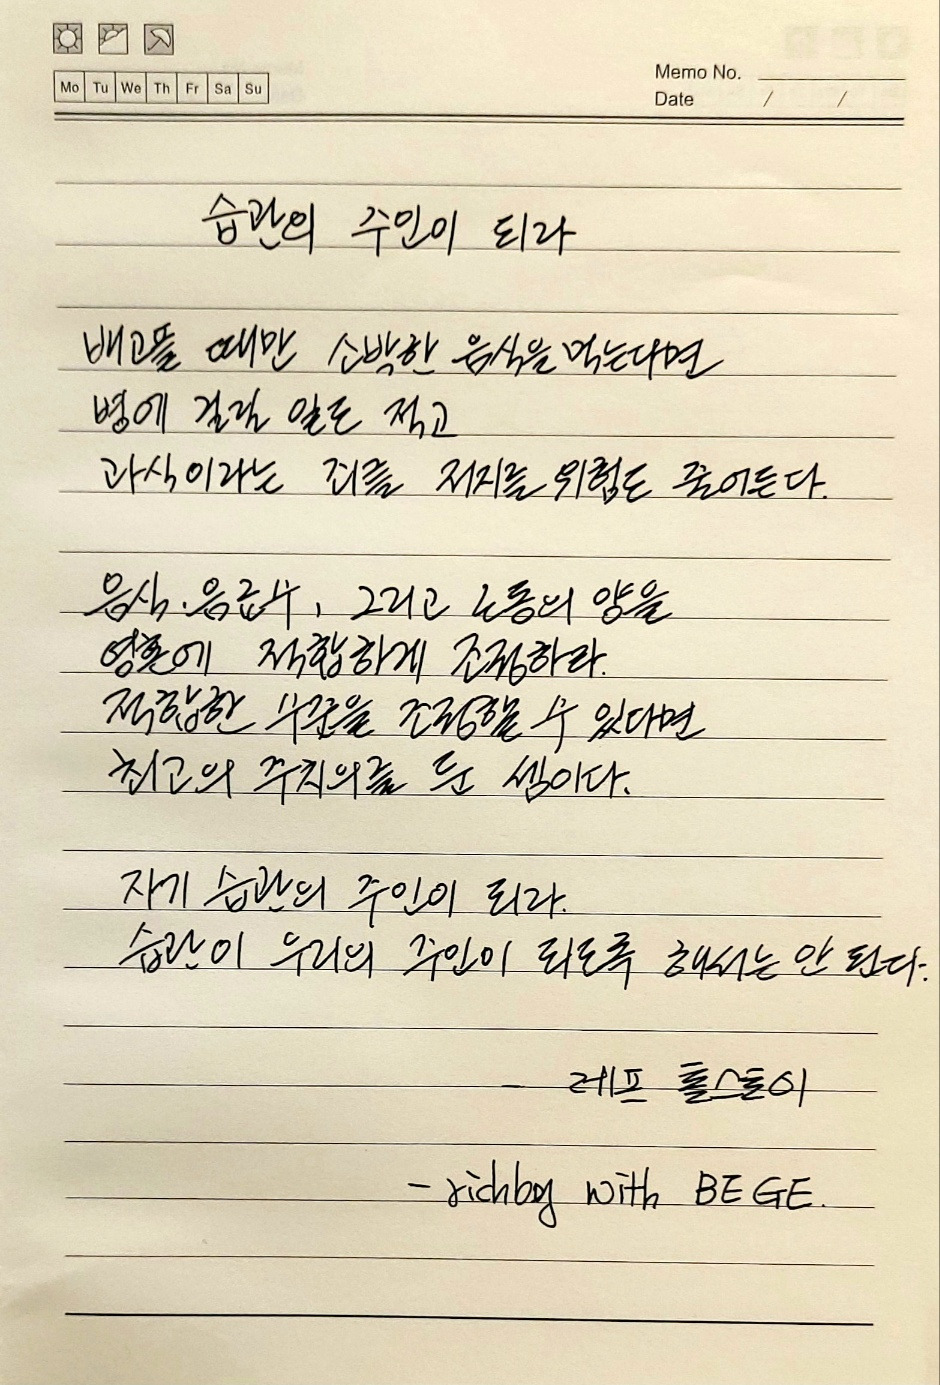 Mo Tu We Th Fr Sa Su
Memo No.
Date / /
습관의 주인이 되라
배고플 때만 소박한 음식을 먹는다면
병에 걸릴 일도 적고
과식이라는 죄를 저지를 위험도 줄어든다.
음식, 음료수, 그리고 노동의 양을
영혼에 적합하게 조절하라.
적합한 수준을 조절할 수 있다면
최고의 주치의를 둔 셈이다.
자기 습관의 주인이 되라.
습관이 우리의 주인이 되도록 해서는 안 된다.
- 레프 톨스토이
- richboy with BEGE.